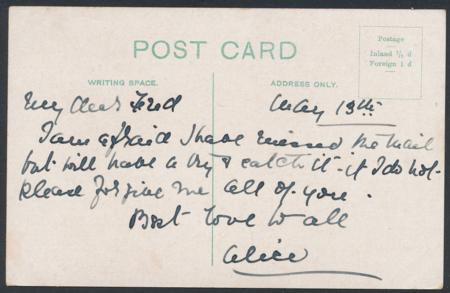 POST CARD
Postage
Inland ½ d
Foreign 1 d
WRITING SPACE.
ADDRESS ONLY.
My dear Fred
May 13th
I am afraid I have missed the mail
but will have a try & catch it - if I do not -
please forgive me all of you.
Best love to all
Alice